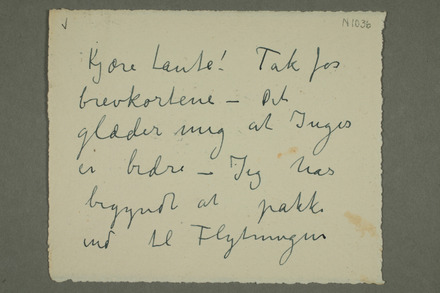 N1036
Kjære tante! Tak for
brevkortene – Det
glæder mig at Inger
er bedre – Jeg har
begyndt at pakke
ind til Flytningen